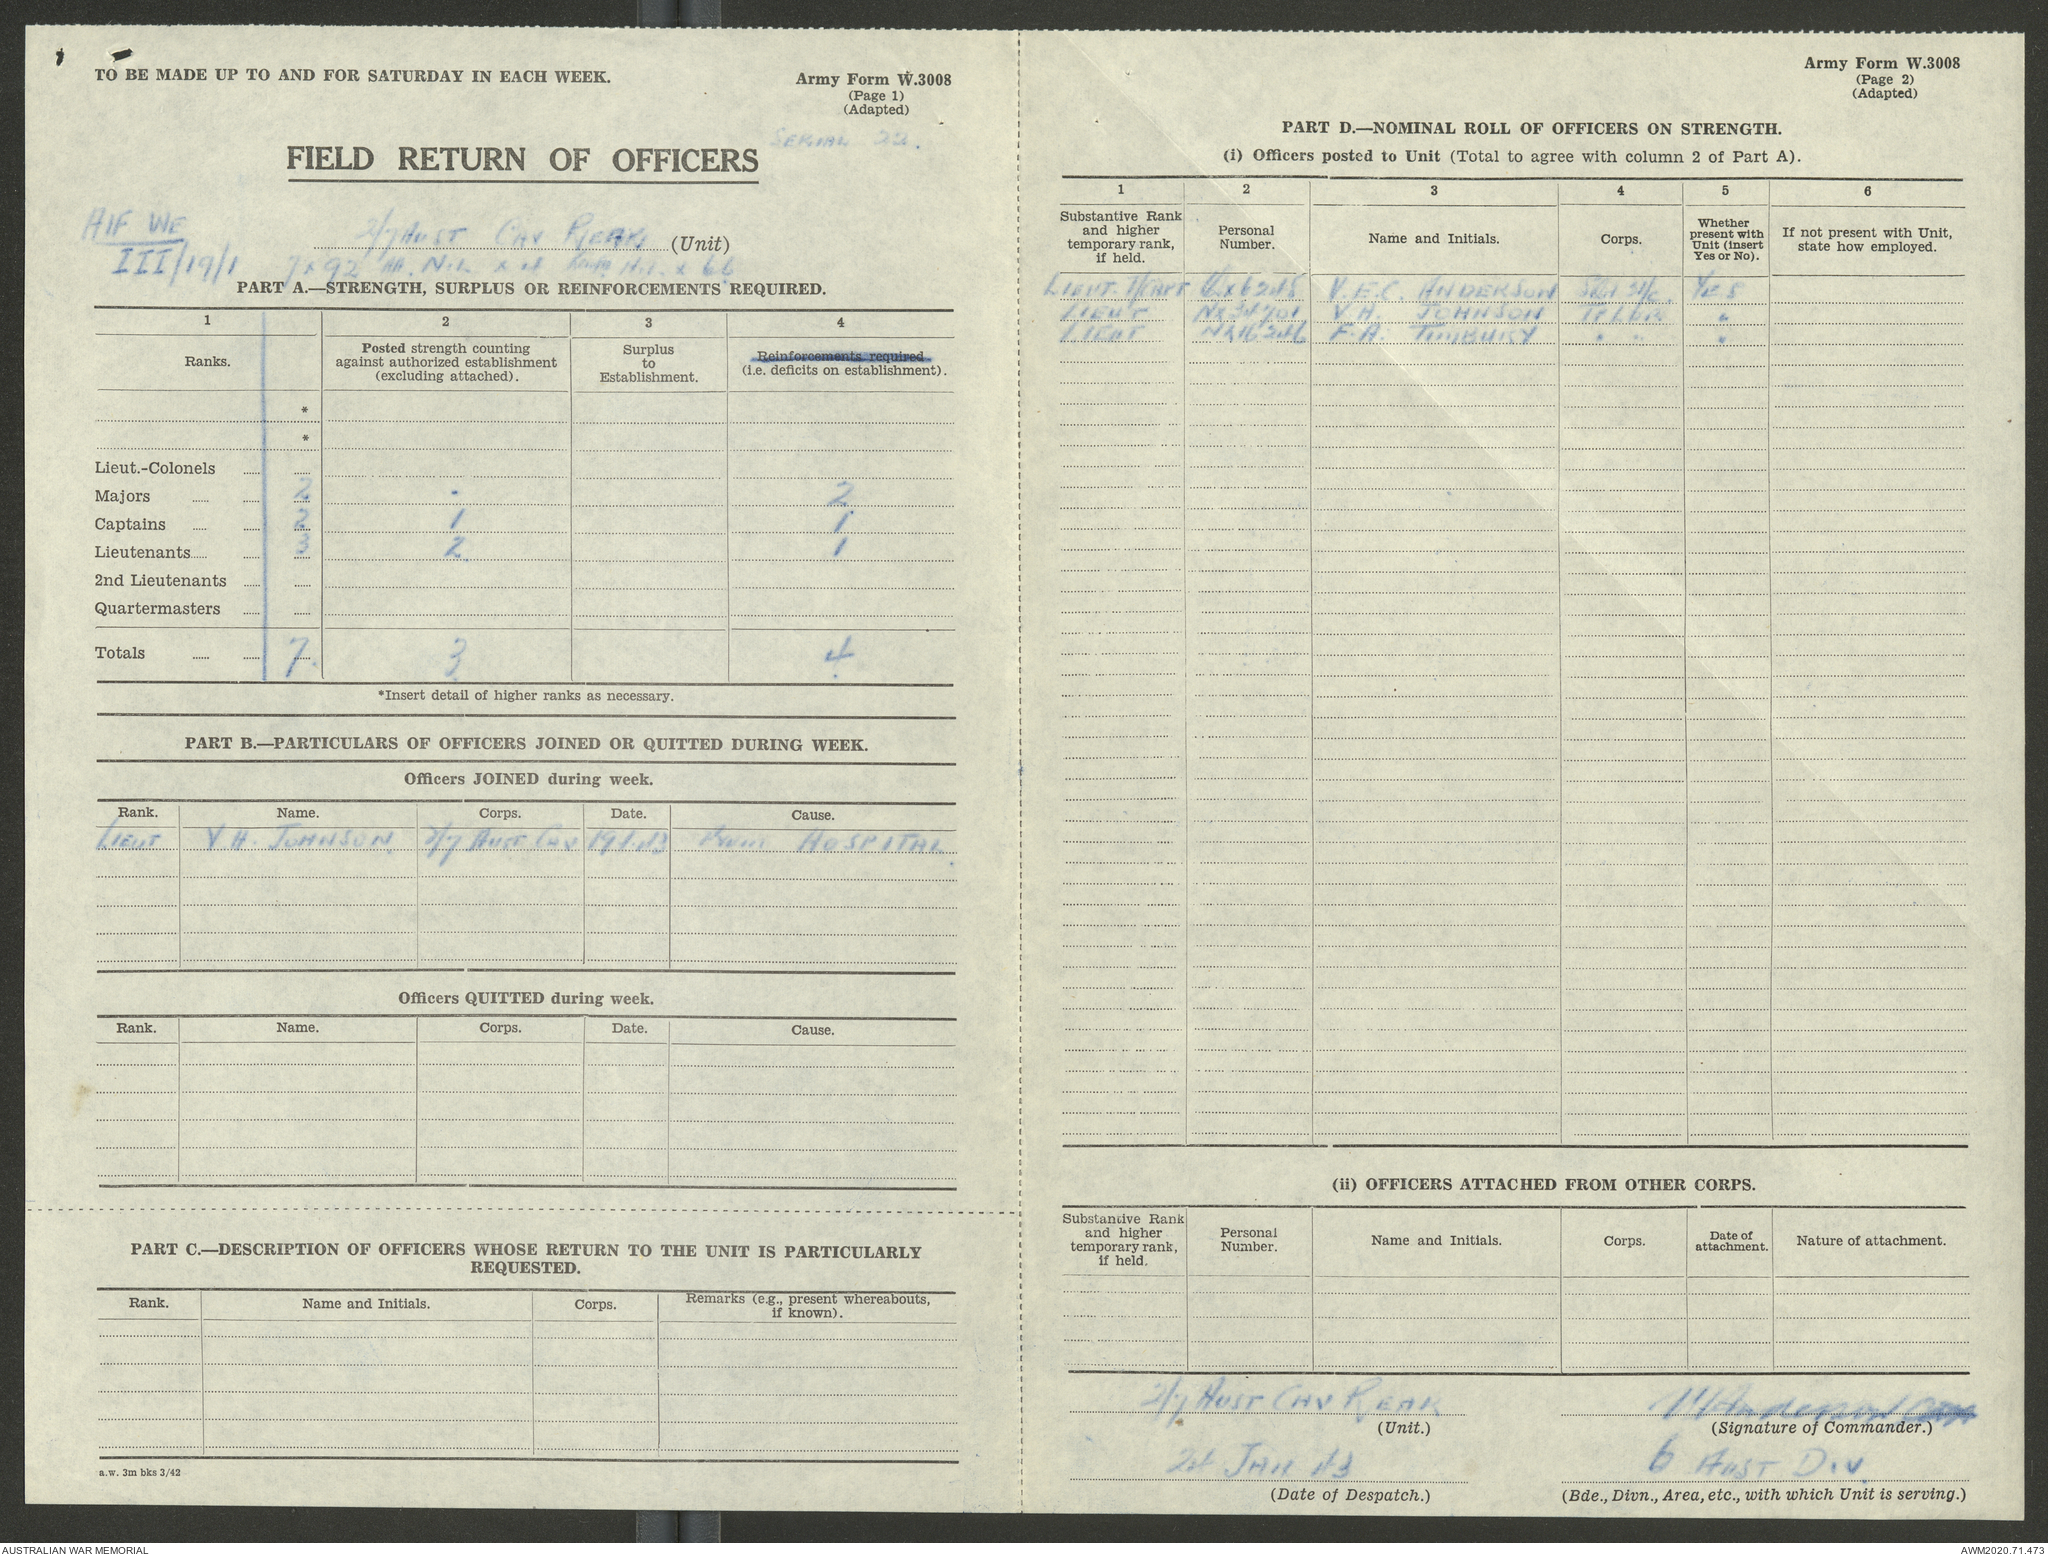 TO BE MADE UP TO AND FOR SATURDAY IN EACH WEEK.
Army Form W.3008
(Page 1)
(Adapted)
SERIAL 22.
FIELD RETURN OF OFFICERS
AIF WE
III/19/1
2/7 AUST CAV REAR (Unit)
7 x 92 NIL x NIL x 66
PART A.—STRENGTH, SURPLUS OR REINFORCEMENTS REQUIRED.
1 2 3 4
Ranks.
Posted strength counting against authorized establishment (excluding attached).
Surplus to Establishment.
Reinforcements required (i.e. deficits on establishment).
*
*
Lieut.-Colonels
Majors 2 - 2
Captains 2 1 1
Lieutenants 3 2 1
2nd Lieutenants
Quartermasters
Totals 7 3 4
*Insert detail of higher ranks as necessary.
PART B.—PARTICULARS OF OFFICERS JOINED OR QUITTED DURING WEEK.
Officers JOINED during week.
Rank. Name. Corps. Date. Cause.
LIEUT V.H. JOHNSON 2/7 AUST CAV 19.1.43 From HOSPITAL.
Officers QUITTED during week.
Rank. Name. Corps. Date. Cause.
PART C.—DESCRIPTION OF OFFICERS WHOSE RETURN TO THE UNIT IS PARTICULARLY
REQUESTED.
Rank. Name and Initials. Corps. Remarks (e.g., present whereabouts, if known).
a.w. 3m bks 3/42
Army Form W.3008
(Page 2)
(Adapted)
PART D.—NOMINAL ROLL OF OFFICERS ON STRENGTH.
(i) Officers posted to Unit (Total to agree with column 2 of Part A).
1 2 3 4 5 6
Substantive Rank and higher temporary rank, if held.
Personal Number.
Name and Initials.
Corps.
Whether present with Unit (insert Yes or No).
If not present with Unit, state how employed.
LIEUT T/CAPT V.E.C. ANDERSON YES
LIEUT NX34701 V.H. JOHNSON TP LDR "
LIEUT NX16346 F.A. TIMBURY " " "
(ii) OFFICERS ATTACHED FROM OTHER CORPS.
Substantive Rank and higher temporary rank, if held.
Personal Number.
Name and Initials.
Corps.
Date of attachment.
Nature of attachment.
2/7 AUST CAV REAR
(Unit.)
(Signature of Commander.)
24 JAN 43
(Date of Despatch.)
6 AUST DIV.
(Bde., Divn., Area, etc., with which Unit is serving.)
AUSTRALIAN WAR MEMORIAL
AWM2020.71.473